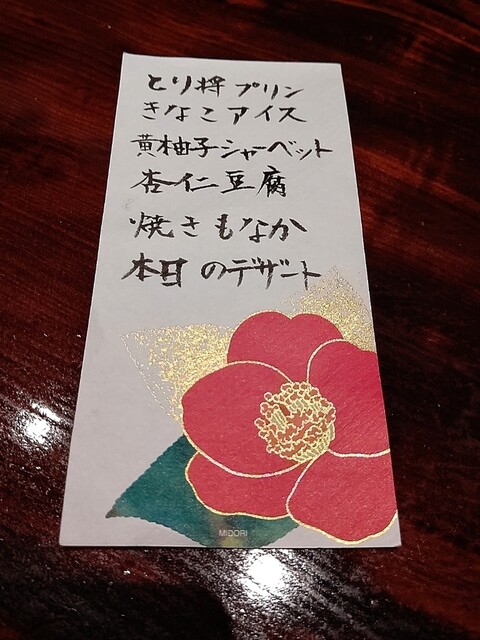 とり将プリン
きなこアイス
黄柚子シャーベット
杏仁豆腐
焼きもなか
本日のデザート
MIDORI